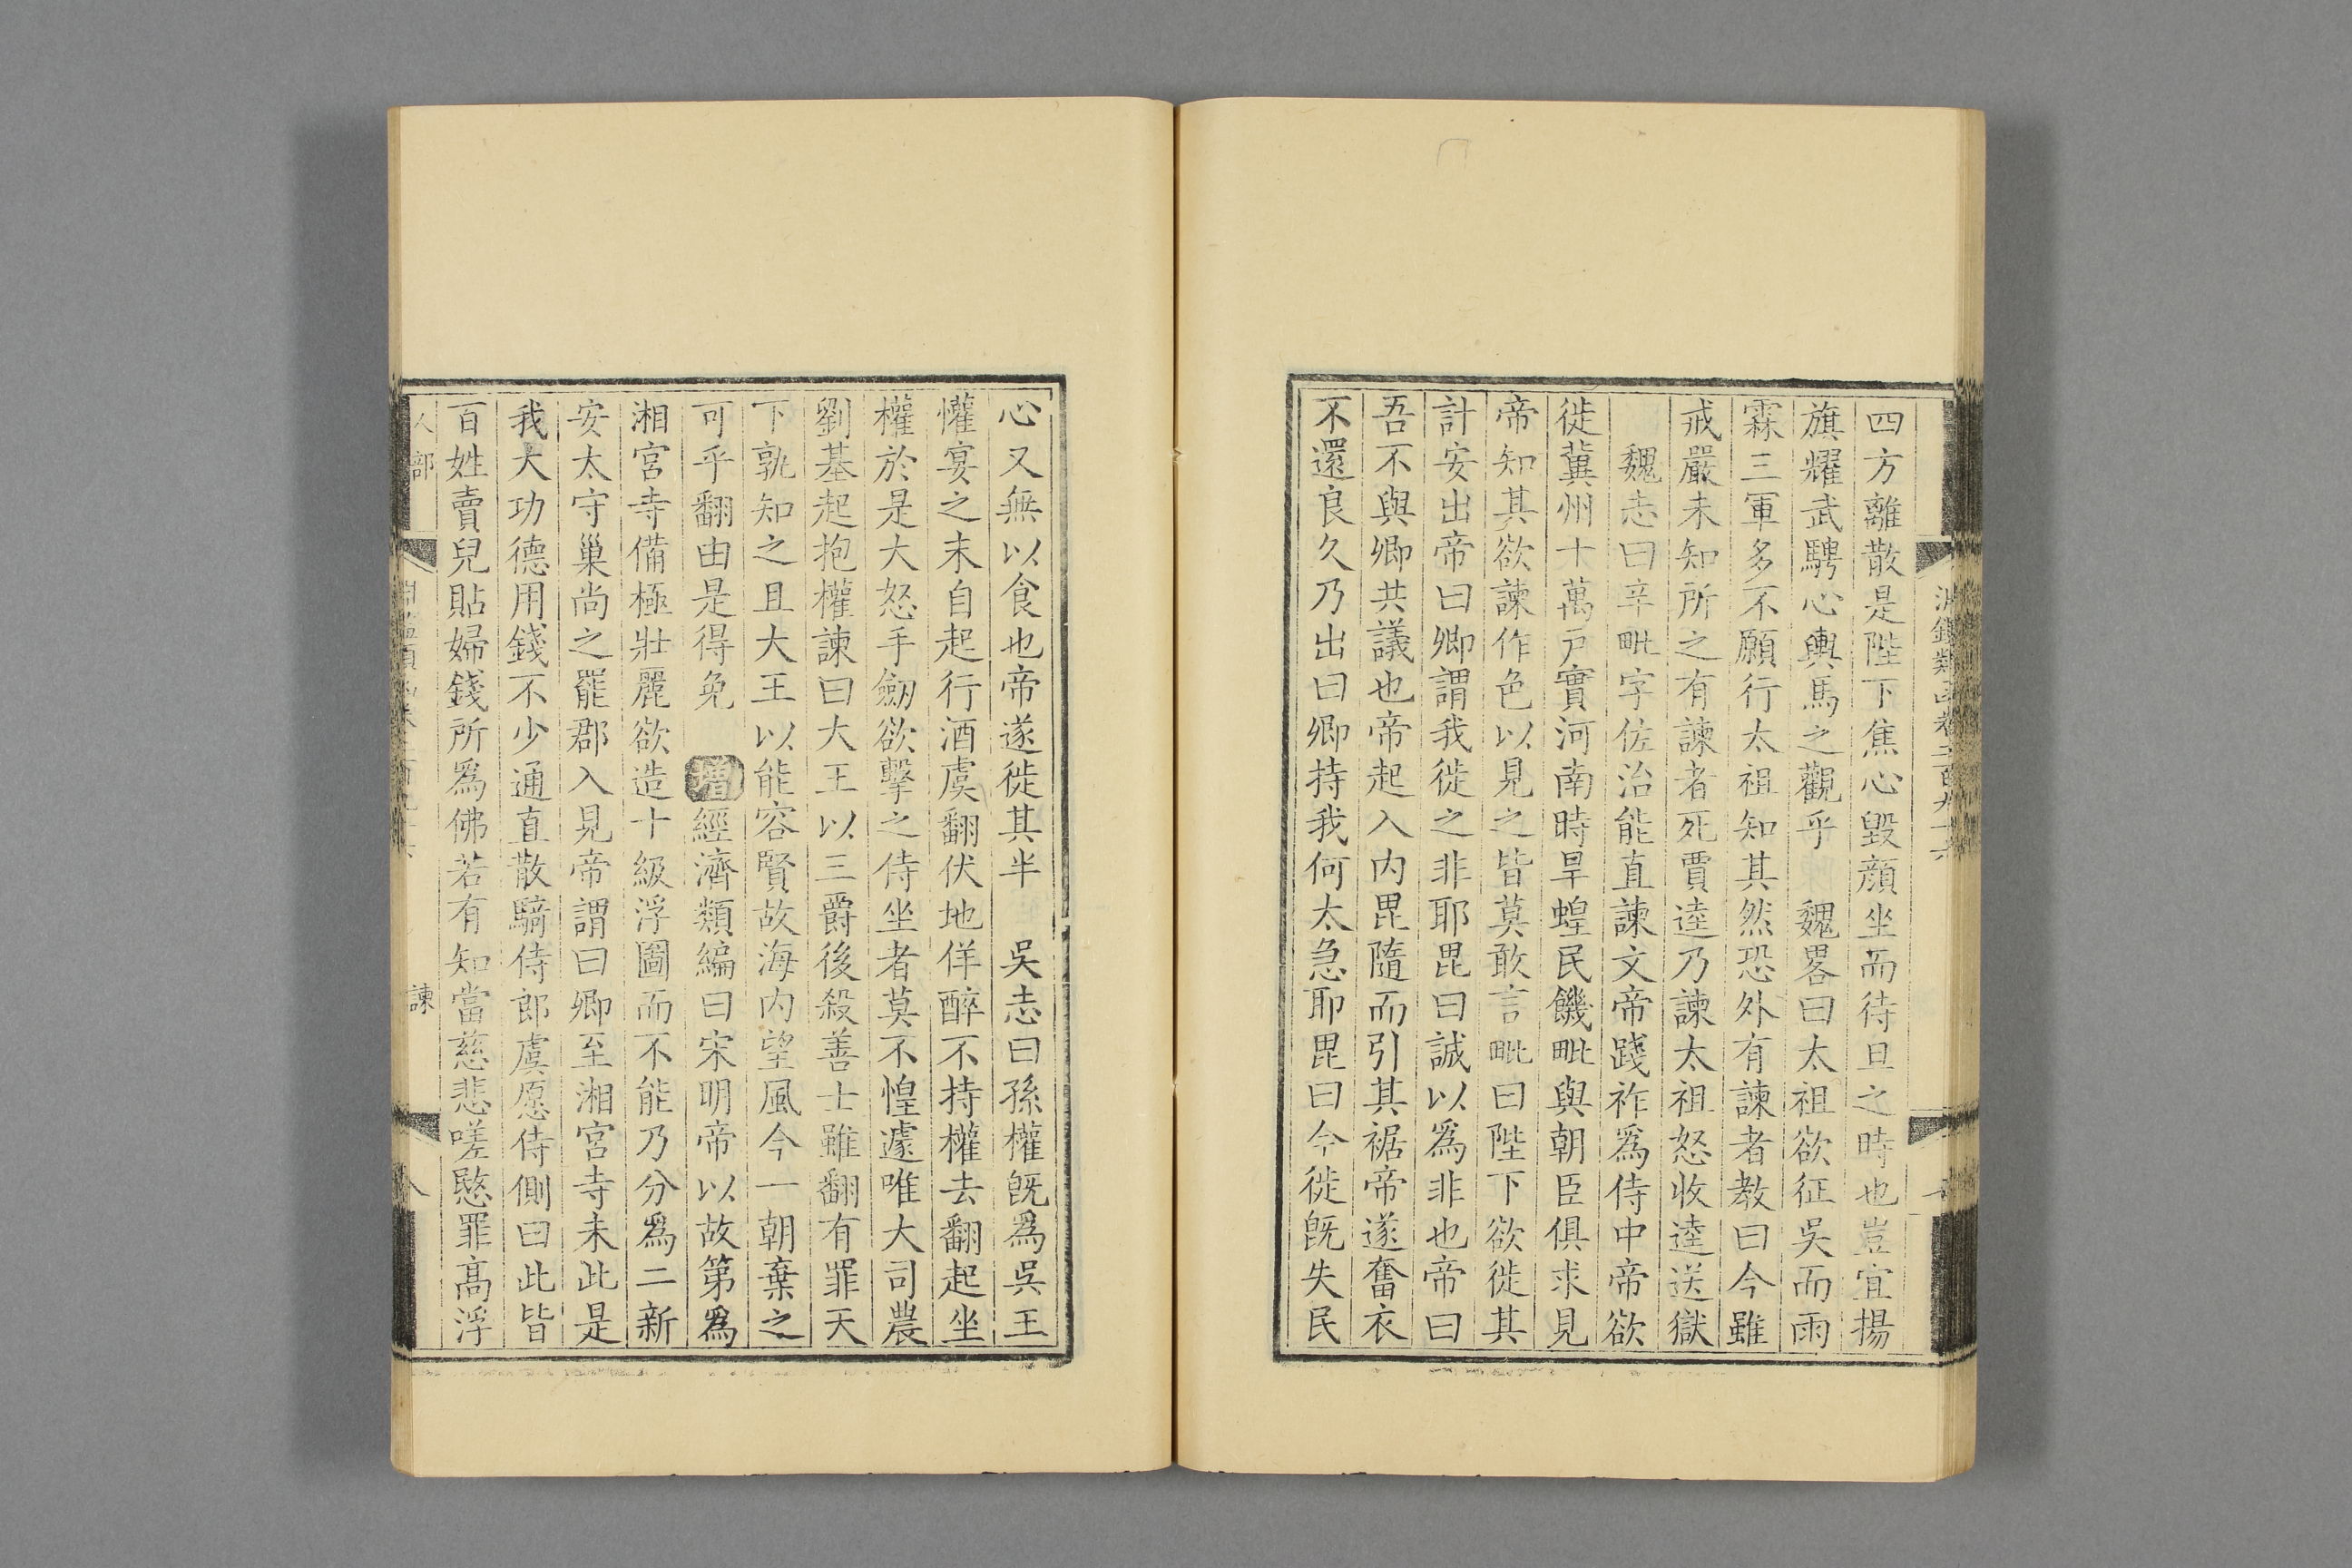 四方離散是陛下焦心毀顔坐而待旦之時也豈宜揚
旗耀武騁心輿馬之觀乎 魏畧曰太祖欲征吳而雨
霖三軍多不願行太祖知其然恐外有諫者教曰今雖
戒嚴未知所之有諫者死賈逵乃諫太祖怒收逵送獄
魏志曰辛毗字佐治能直諫文帝踐祚爲侍中帝欲
徙冀州十萬戸實河南時旱蝗民饑毗與朝臣俱求見
帝知其欲諫作色以見之皆莫敢言毗曰陛下欲徙其
計安出帝曰卿謂我徙之非耶毘曰誠以爲非也帝曰
吾不與卿共議也帝起入内毘隨而引其裾帝遂奮衣
不還良久乃出曰卿持我何太急耶毘曰今徙旣失民
心又無以食也帝遂徙其半 吳志曰孫權旣爲吳王
懽宴之末自起行酒虞翻伏地佯醉不持權去翻起坐
權於是大怒手劒欲擊之侍坐者莫不惶遽唯大司農
劉基起抱權諫曰大王以三爵後殺善士雖翻有罪天
下孰知之且大王以能容賢故海内望風今一朝棄之
可乎翻由是得免 增經濟類編曰宋明帝以故第爲
湘宮寺備極壯麗欲造十級浮圖而不能乃分爲二新
安太守巢尚之罷郡入見帝謂曰卿至湘宮寺未此是
我大功德用錢不少通直散騎侍郎虞愿侍側曰此皆
百姓賣兒貼婦錢所爲佛若有知當慈悲嗟愍罪高浮
人部 諫 八